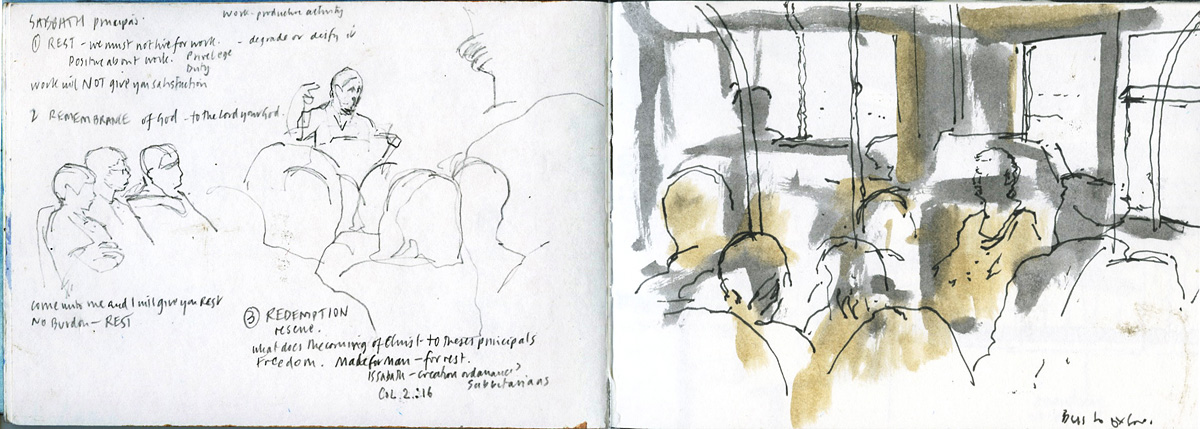 SABBATH principals.
work - productive activity
① REST - we must not live for work. - degrade or deify it
Positive about work. Privelege
Duty
work will NOT give you satisfaction
2 REMEMBRANCE of God - to the Lord your God.
come unto me and I will give you Rest
No Burdon - REST
③ REDEMPTION
rescue.
what does the coming of Christ to theses principals
Freedom. Made for man - for rest.
Is Sabath - creation ordanance?
Sabbatarians
COL. 2:16
Bus to